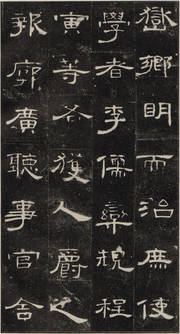 嶽鄉明而治庶使
學者李儒欒規程
寅等各獲人爵之
報廓廣聽事官舍